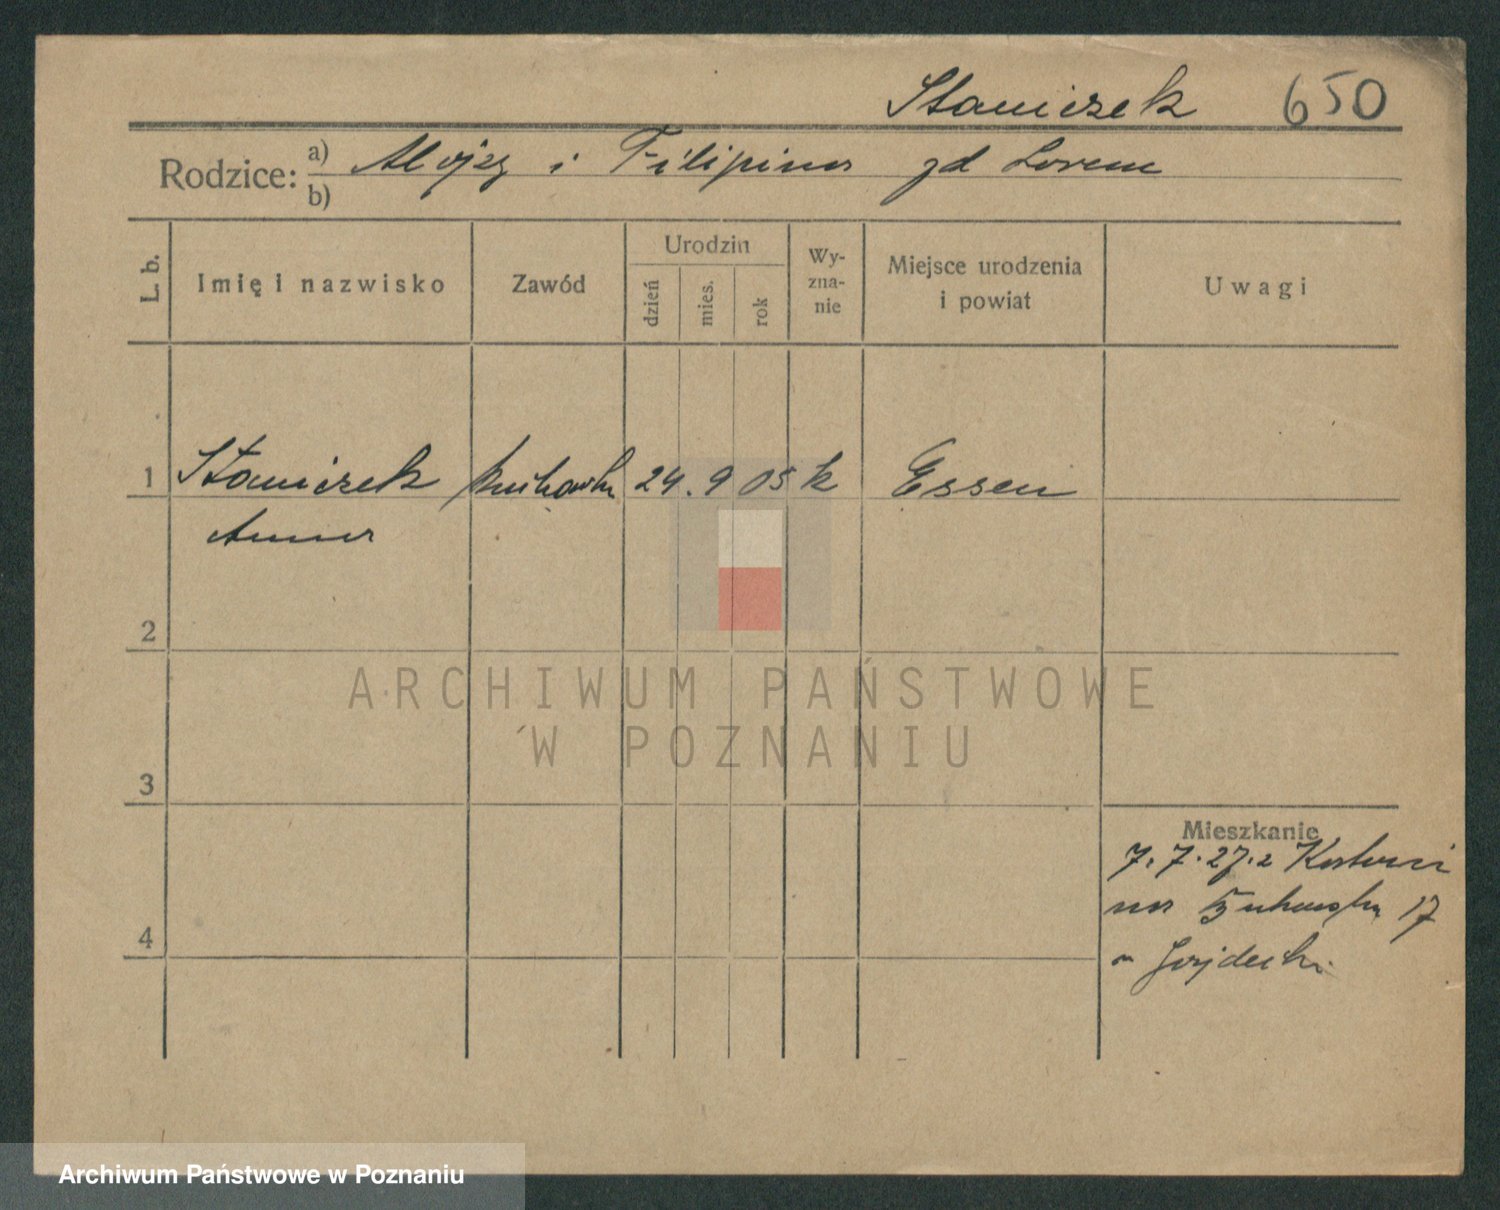 Staniczek 650
Rodzice: a) Alojzy i Filipina zd Lorenc
b)
L. b. Imię i nazwisko Zawód Urodzin dzień mies. rok Wy-zna-nie Miejsce urodzenia i powiat Uwagi
1 Staniczek 24. 9 05 k Essen
Anna
2
ARCHIWUM PAŃSTWOWE
W POZNANIU
3
Mieszkanie
7. 7. 27. z
na 17
4
Archiwum Państwowe w Poznaniu